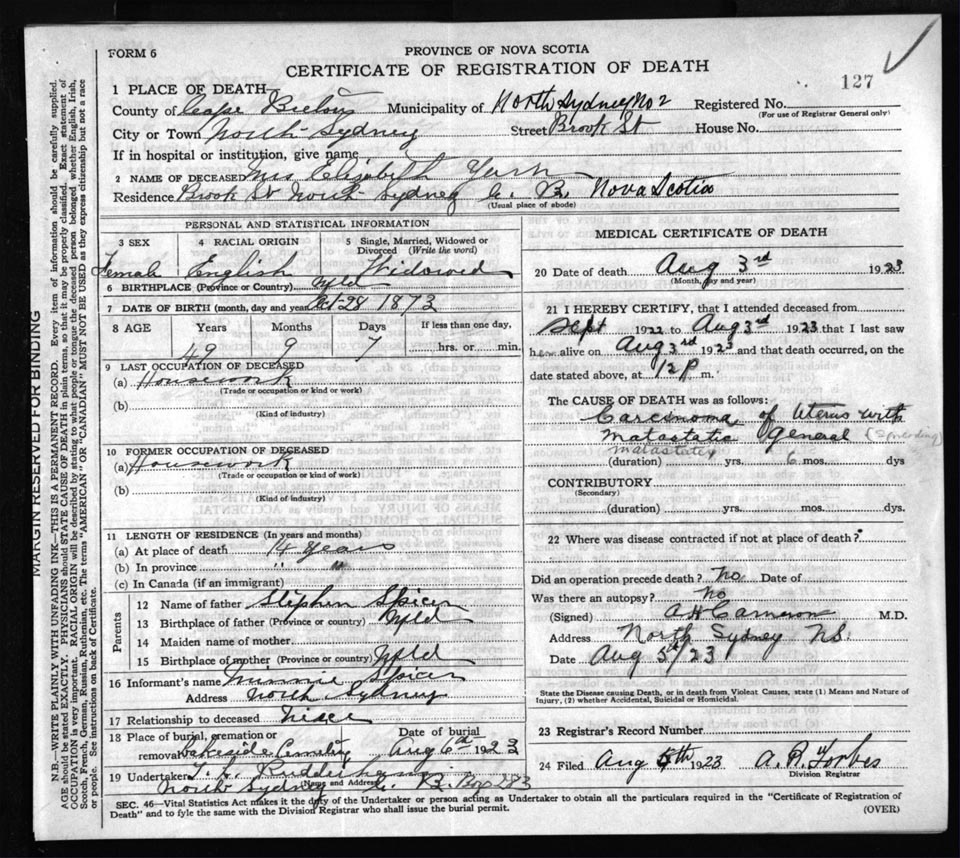 FORM 6
PROVINCE OF NOVA SCOTIA
CERTIFICATE OF REGISTRATION OF DEATH
127
1 PLACE OF DEATH—
County of Cape Breton Municipality of North Sydney No 2 Registered No.
(For use of Registrar General only)
City or Town North Sydney Street Brook St House No.
If in hospital or institution, give name
2 NAME OF DECEASED Mrs Elizabeth
Residence Brook St North Sydney C. B. Nova Scotia
(Usual place of abode)
PERSONAL AND STATISTICAL INFORMATION
3 SEX 4 RACIAL ORIGIN 5 Single, Married, Widowed or Divorced (Write the word)
Female English Widowed
6 BIRTHPLACE (Province or Country) Nfld
7 DATE OF BIRTH (month, day and year) Oct-28 1873
8 AGE Years Months Days If less than one day,
49 9 7 hrs. or min.
9 LAST OCCUPATION OF DECEASED
(a) Housework
(Trade or occupation or kind or work)
(b)
(Kind of industry)
10 FORMER OCCUPATION OF DECEASED
(a) Housework
(Trade or occupation or kind of work)
(b)
(Kind of industry)
11 LENGTH OF RESIDENCE (In years and months)
(a) At place of death 14 years
(b) In province " "
(c) In Canada (if an immigrant)
Parents
12 Name of father Stephen Spicer
13 Birthplace of father (Province or country) Nfld
14 Maiden name of mother
15 Birthplace of mother (Province or country) Nfld
16 Informant's name Minnie Spicer
Address North Sydney
17 Relationship to deceased Niece
18 Place of burial, cremation or Date of burial
removal Lakeside Cemetery Aug 6th 1923
19 Undertaker
(Name and Address)
North Sydney C. B. Box 283
MEDICAL CERTIFICATE OF DEATH
20 Date of death Aug 3rd 1923
(Month, day and year)
21 I HEREBY CERTIFY, that I attended deceased from
Sept 1922 to Aug 3rd 1923 that I last saw
h er alive on Aug 3rd 1923 and that death occurred, on the
date stated above, at 12 P m.
The CAUSE OF DEATH was as follows:
Carcinoma of Uterus with
matastatic general (spreading)
matastatic
(duration) yrs. 6 mos. dys
CONTRIBUTORY
(Secondary)
(duration) yrs. mos. dys.
22 Where was disease contracted if not at place of death?
Did an operation precede death? No Date of
Was there an autopsy? No
(Signed) A H Cameron M.D.
Address North Sydney N.S.
Date Aug 5th/23
State the Disease causing Death, or in death from Violent Causes, state (1) Means and Nature of
Injury, (2) whether Accidental, Suicidal or Homicidal.
23 Registrar's Record Number
24 Filed Aug 5th 1923 A. P. Forbes
Division Registrar
SEC. 46—Vital Statistics Act makes it the duty of the Undertaker or person acting as Undertaker to obtain all the particulars required in the "Certificate of Registration of
Death" and to fyle the same with the Division Registrar who shall issue the burial permit. (OVER)
MARGIN RESERVED FOR BINDING
N.B.—WRITE PLAINLY WITH UNFADING INK—THIS IS A PERMANENT RECORD. Every item of information should be carefully supplied.
AGE should be stated EXACTLY. PHYSICIANS should STATE CAUSE OF DEATH in plain terms, so that it may be properly classified. Exact statement of
OCCUPATION is very important. RACIAL ORIGIN will be described by stating to what people or tongue the deceased person belonged whether English, Irish,
Scotch, French, German, Russian, Ruthenian, etc. The terms "AMERICAN" OR "CANADIAN" MUST NOT BE USED as they express citizenship but not a race
or people. See instructions on back of Certificate.